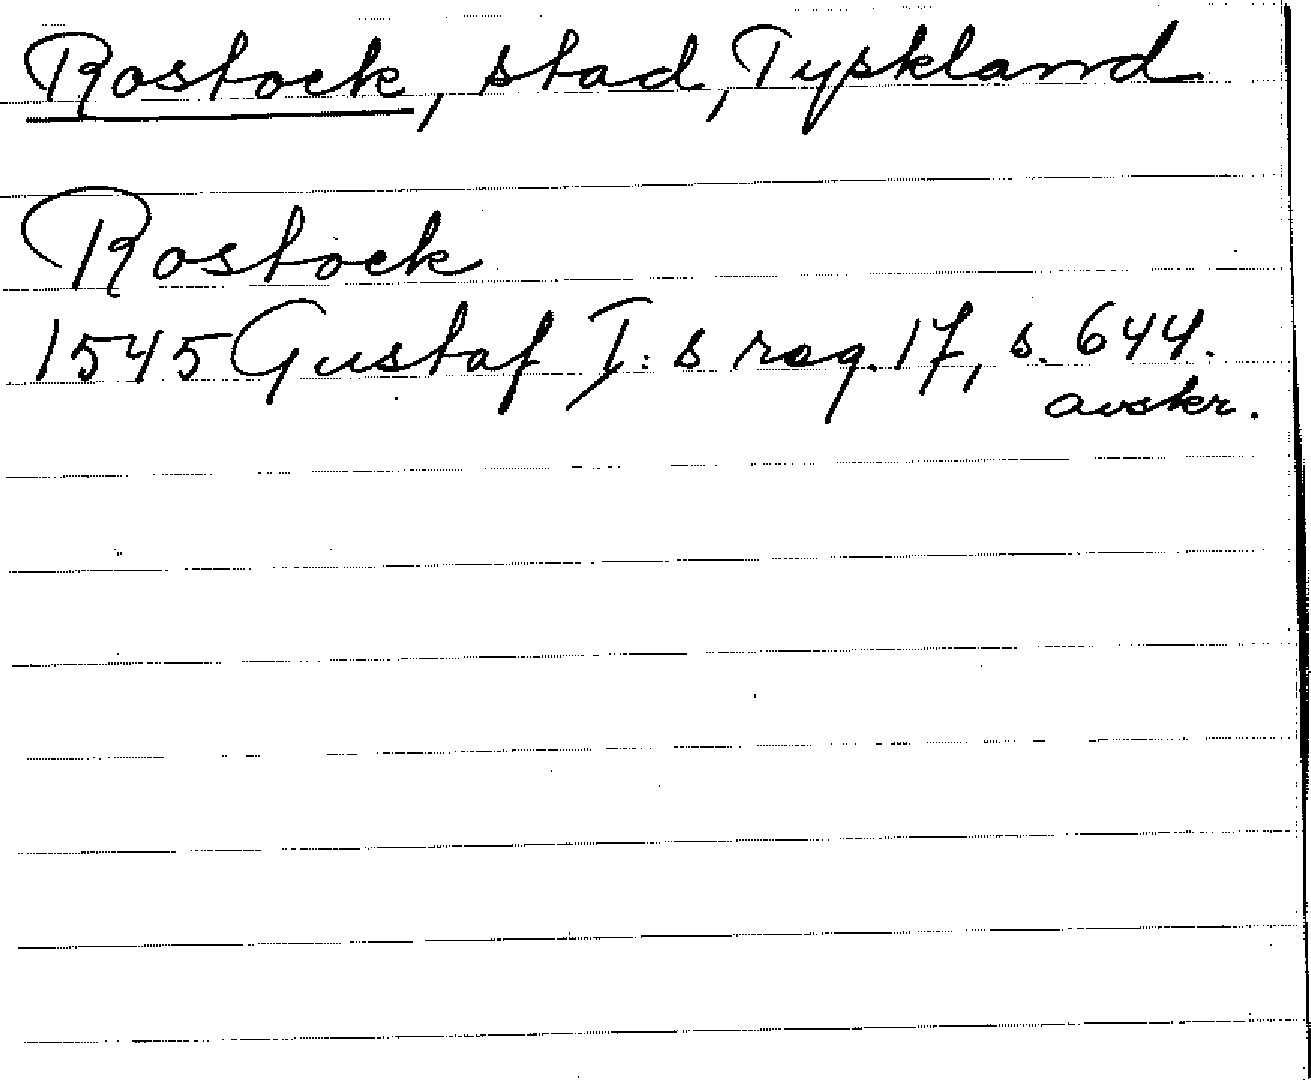 Rostock, stad, Tyskland
Rostock
1545 Gustaf I:s reg. 17, s. 644.
avskr.